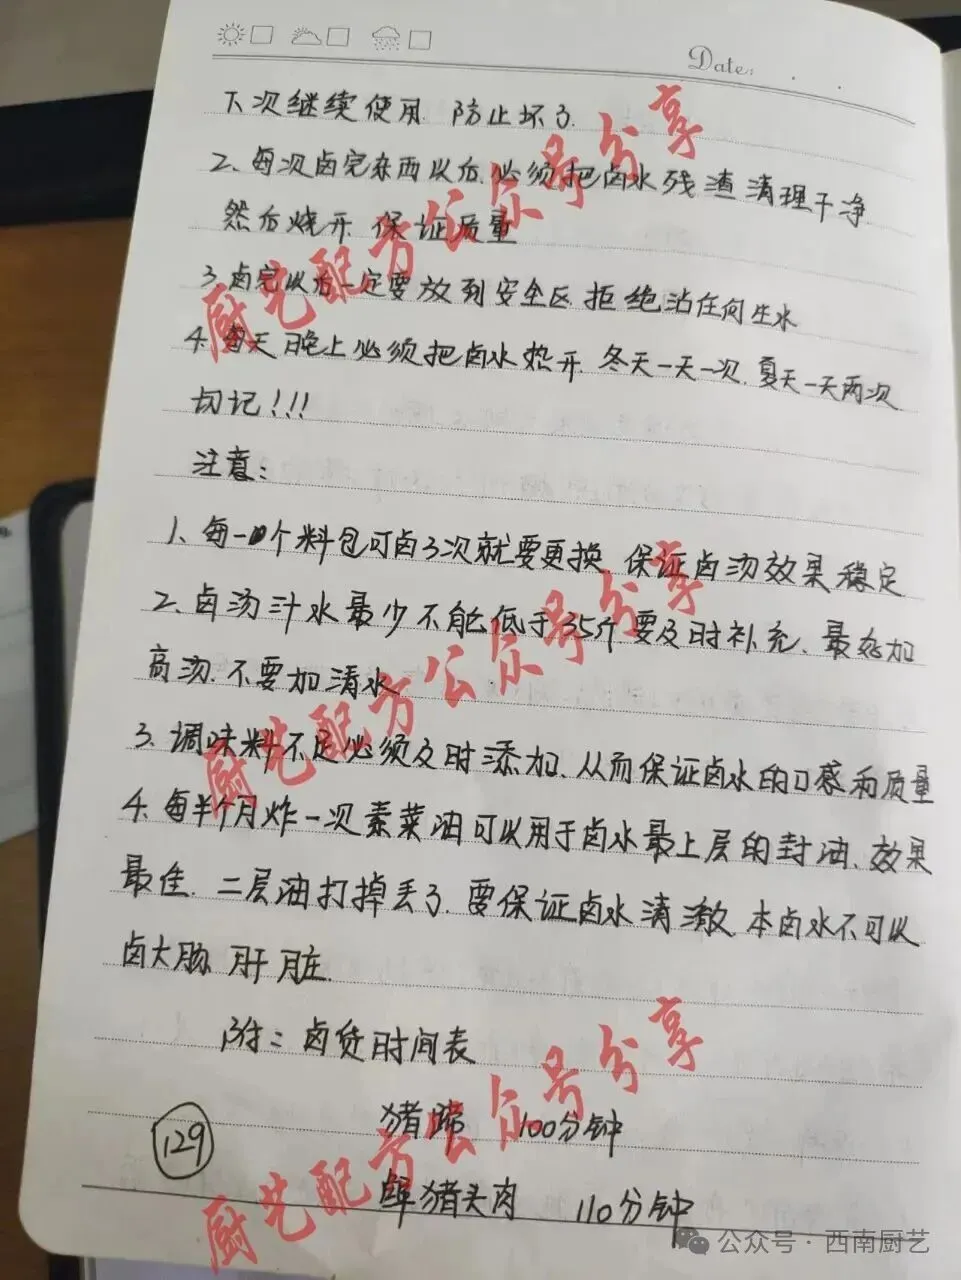 Date:
下次继续使用 防止坏了.
2、每次卤完东西以后.必须把卤水残渣清理干净
然后烧开 保证质量
3.卤完以后一定要放到安全区.拒绝沾任何生水
4.每天晚上必须把卤水热开.冬天一天一次.夏天一天两次
切记!!!
注意:
1、每一个料包可卤3次就要更换.保证卤汤效果稳定
2、卤汤汁水最少不能低于35斤.要及时补充、最好加
高汤.不要加清水
3、调味料不足必须及时添加、从而保证卤水的口感和质量
4、每半个月炸一次素菜油可以用于卤水最上层的封油、效果
最佳.二层油打掉丢了.要保证卤水清澈 本卤水不可以
卤大肠 肝脏.
附:卤货时间表
猪蹄 100分钟
129
鲜猪头肉 110分钟
厨艺配方公众号分享
厨艺配方公众号分享
厨艺配方公众号分享
公众号·西南厨艺